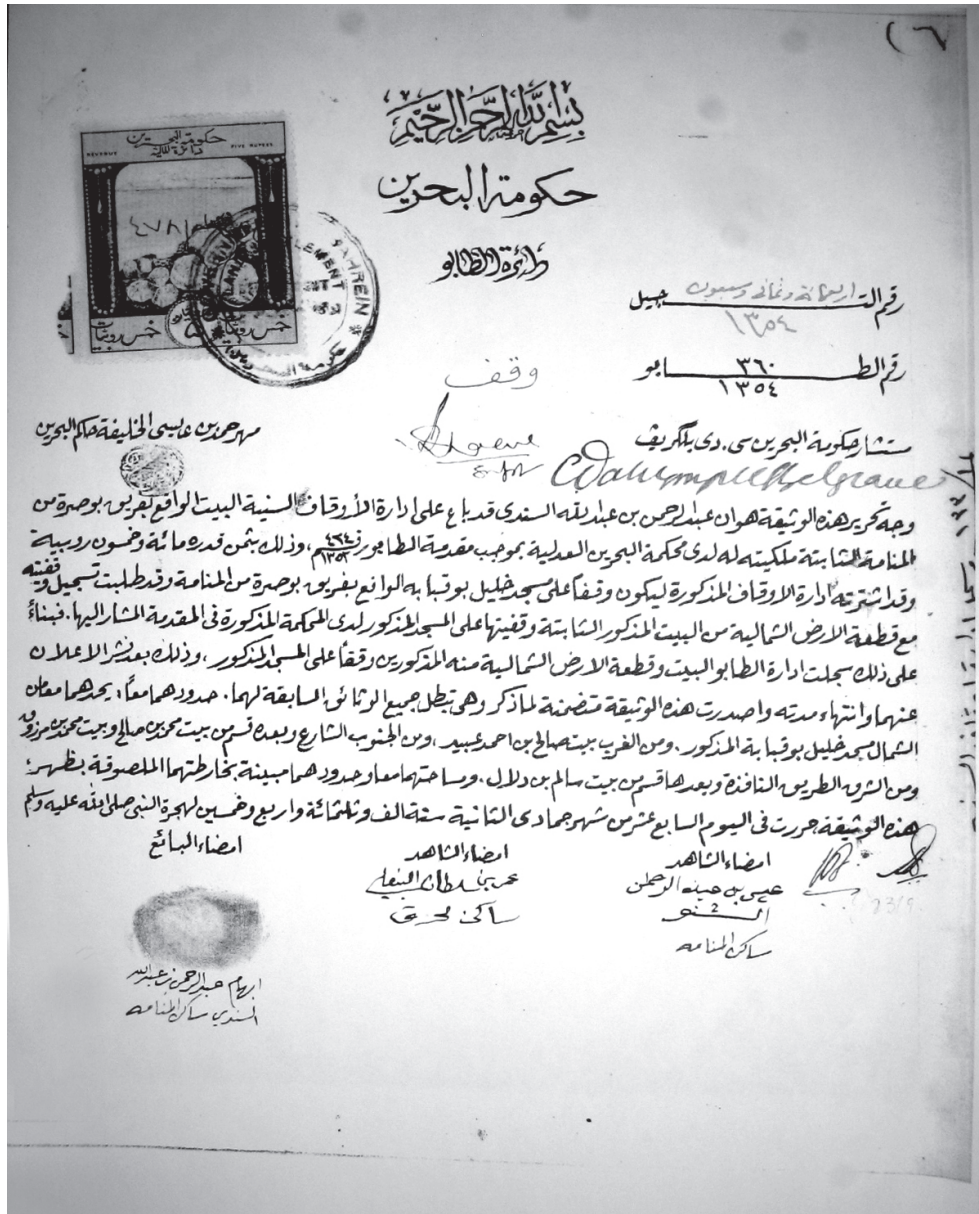 ٦)
بسم الله الرحمن الرحيم
حكومة البحرين
دائرة الطابو
حكومة البحرين
دائرة المالية
REVENUE FIVE RUPEES
خمس روبيات ٥ خمس روبيات
BAHREIN
رقم التسجيل اربعمائة وثمانى وسبعون
١٣٥٤
رقم الطابو ٣٦٠
١٣٥٤
وقف
مهر حمد بن عايسى الخليفة حاكم البحرين
مستشار حكومة البحرين سى. دى بلگريف
C Dalrymple Belgrave
وجه تحرير هذه الوثيقة هو ان عبدالرحمن بن عبدالله السندى قد باع على ادارة الأوقاف السنية البيت الواقع بفريق بوصرة من
المنامة الثابتة ملكيته له لدى محكمة البحرين العدلية بموجب مقدمة الطابو ر ز ٤٦٤/١٣٥٣م، وذلك بثمن قدره مائة وخمسون روبية
وقد اشترته ادارة الاوقاف المذكورة ليكون وقفاً على مسجد خليل بوقبابه الواقع بفريق بوصرة من المنامة وقد طلبت تسجيل وقفيته
مع قطعة الارض الشمالية من البيت المذكور الثابتة وقفيتها على المسجد المذكور لدى المحكمة المذكورة فى المقدمة المشار اليها. فبناءً
على ذلك سجلت ادارة الطابو البيت وقطعة الارض الشمالية منه المذكورين وقفاً على المسجد المذكور، وذلك بعد نشر الاعلان
عنهما وانتهاء مدته واصدرت هذه الوثيقة متضمنة لما ذكر وهى تبطل جميع الوثائق السابقة لهما. حدودهما معاً: يحدهما معاً من
الشمال مسجد خليل بوقبابة المذكور، ومن الغرب بيت صالح بن احمد عبيد، ومن الجنوب الشارع وبعده قسم من بيت محمد بن صالح وبيت محمد بن مرزوق
ومن الشرق الطريق النافذة وبعدها قسم من بيت سالم بن دلال، ومساحتهما معاً وحدودهما مبينة بخارطتهما الملصوقة بظهر
هذه الوثيقة حررت فى اليوم السابع عشر من شهر جمادى الثانية سنة الف وثلثمائة واربع وخمسين لهجرة النبى صلى الله عليه وسلم
امضاء الشاهد
عيسى بن عبد الرحمن
ساكن المنامه
امضاء الشاهد
عمر بن سلطان البنعلي
ساكن محرق
امضاء البائع
ابهام عبدالرحمن بن عبدالله
السندي ساكن المنامه